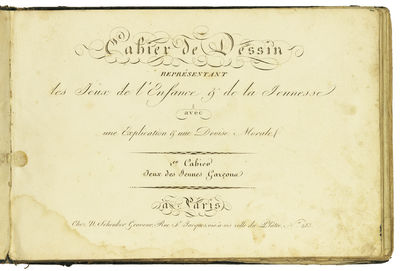 Cahier de Dessin
REPRÉSENTANT
les Jeux de l'Enfance & de la Jeunesse
avec
une Explication & une Devise Morale
1er Cahier
Jeux des Jeunes Garçons
à Paris
Chez N. Schenker Graveur, Rue St Jacques,